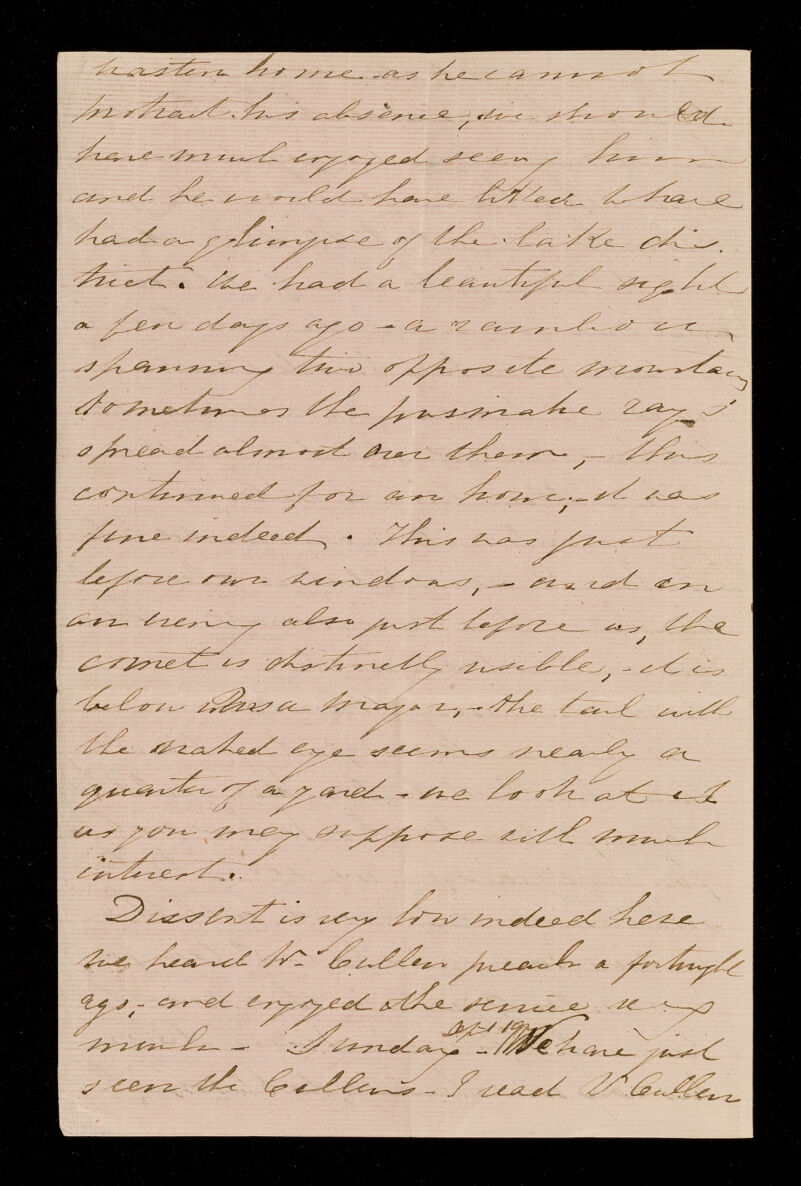 hasten home as he cannot
protract his absence, we should
have much enjoyed seeing him
and he would have liked to have
had a glimpse of the lake dis
trict. We had a beautiful sight
a few days ago - a rainbow
spanning two opposite mountains
sometimes the prismatic rays
spread almost over them, - this
continued for an hour, - it was
fine indeed. This was just
before our windows, - and in
an evening also just before us, the
comet is distinctly visible, - it is
below Ursa Major, - the tail with
the naked eye seems nearly a
quarter of a yard - we look at it
as you may suppose with much
interest.
Dissent is very low indeed here
we heard Mr Cullen preach a fortnight
ago, - and enjoyed the service very
much - Sunday - We have just
seen the Cullens - I read Cullen